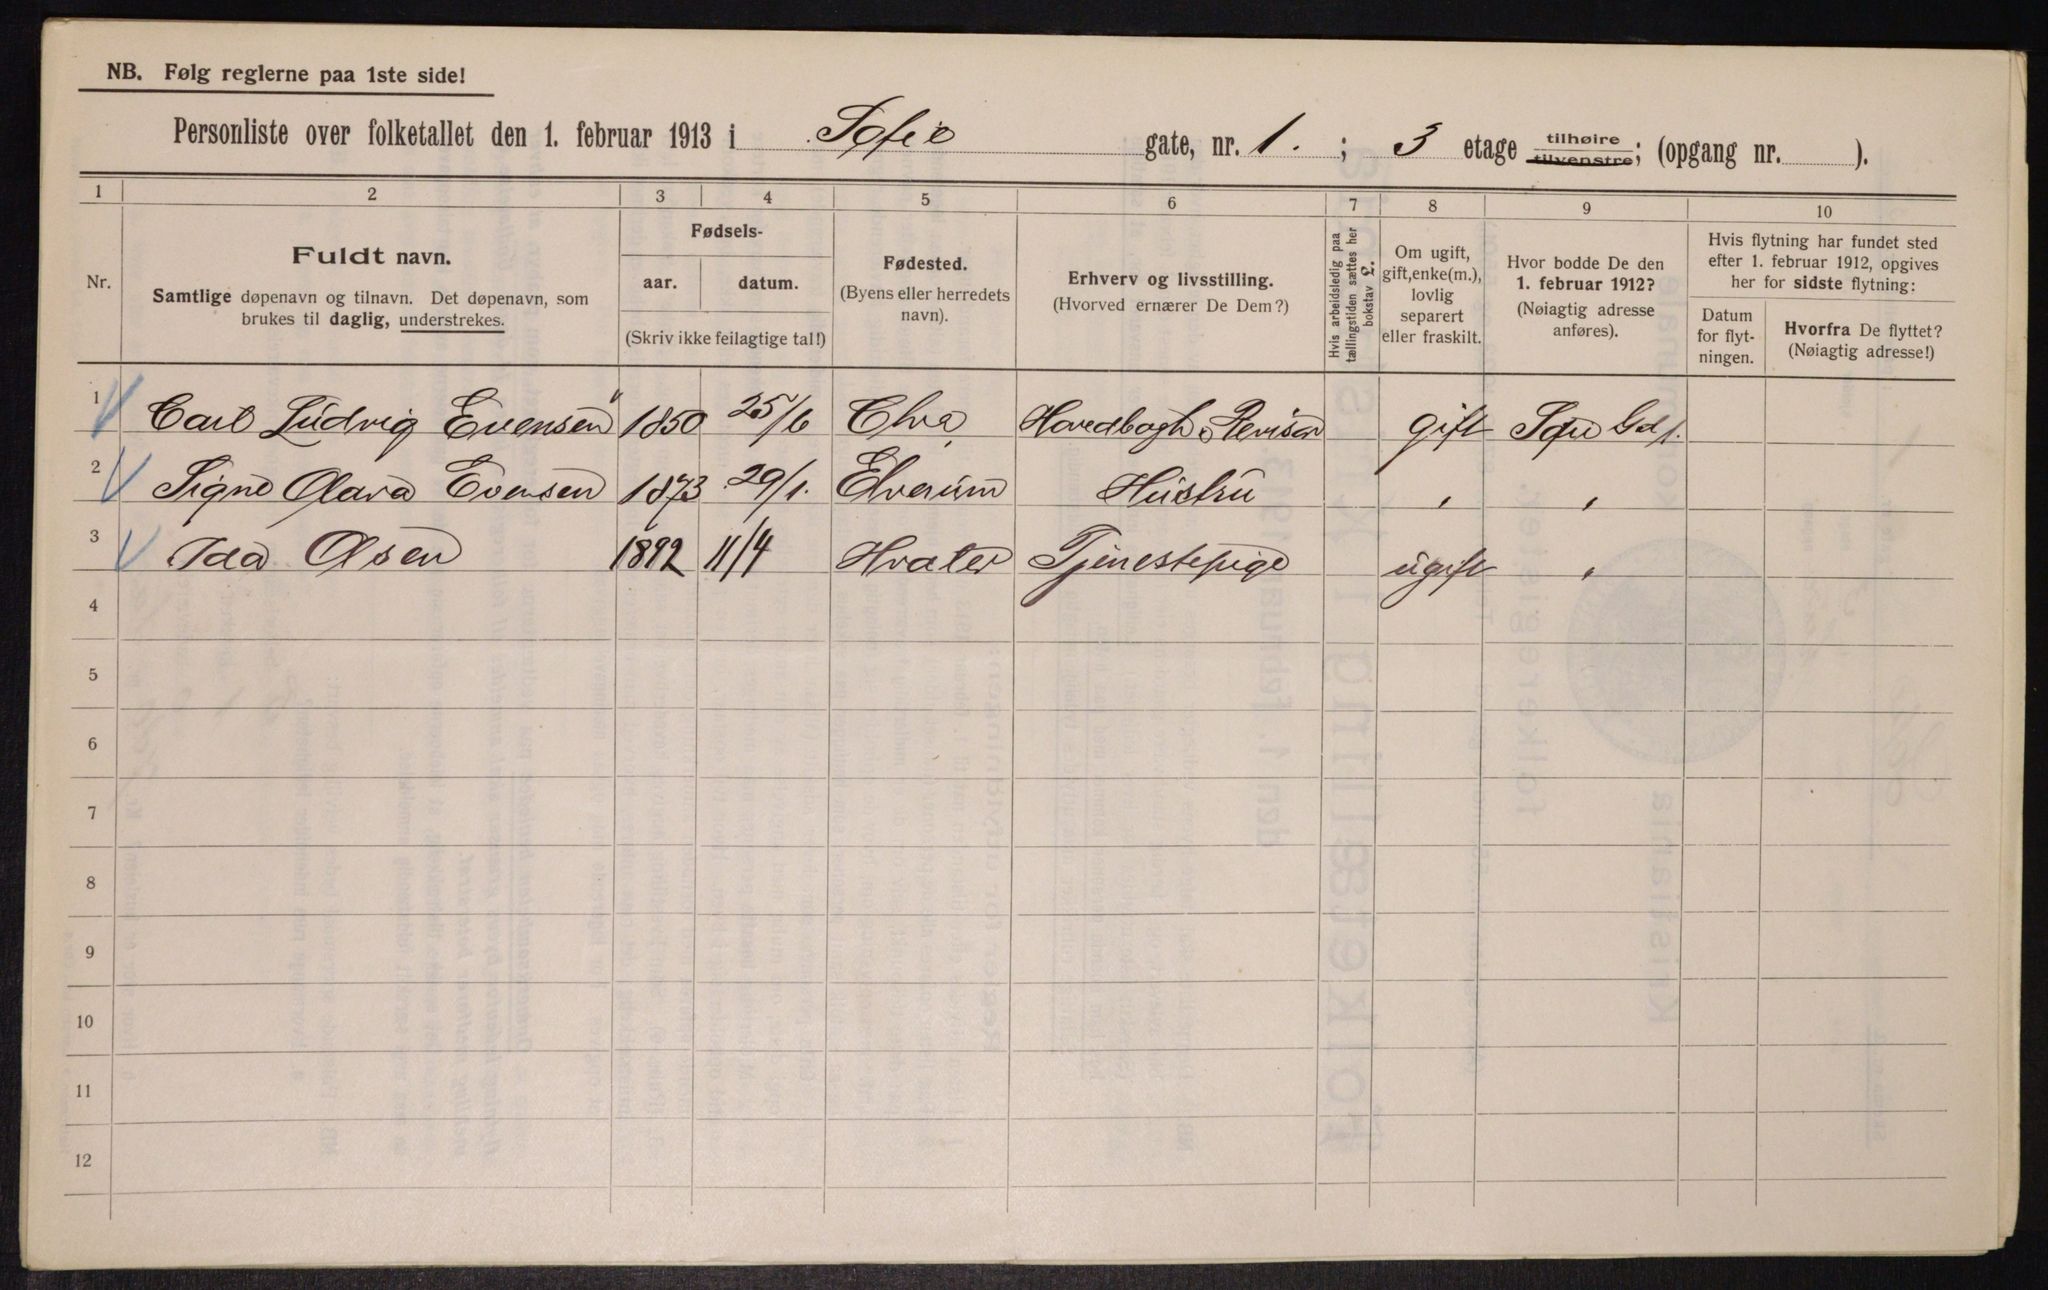 NB. Følg reglerne paa 1ste side!
Personliste over folketallet den 1. februar 1913 i Sofie gate, nr. 1. ; 3 etage tilhøire tilvenstre; (opgang nr. ).
1 2 3 4 5 6 7 8 9 10
Nr.
Fuldt navn.
Samtlige døpenavn og tilnavn. Det døpenavn, som
brukes til daglig, understrekes.
Fødsels-
aar. datum.
(Skriv ikke feilagtige tal!)
Fødested.
(Byens eller herredets
navn).
Erhverv og livsstilling.
(Hvorved ernærer De Dem?)
Hvis arbeidsledig paa
tællingstiden sættes her
bokstav L.
Om ugift,
gift, enke(m.),
lovlig
separert
eller fraskilt.
Hvor bodde De den
1. februar 1912?
(Nøiagtig adresse
anføres).
Hvis flytning har fundet sted
efter 1. februar 1912, opgives
her for sidste flytning:
Datum
for flyt-
ningen.
Hvorfra De flyttet?
(Nøiagtig adresse!)
1 Carl Ludvig Evensen 1850 25/6 Chra Hovedbogh. Revisor gift Sofie Gd 1.
2 Signe Olava Evensen 1873 29/1. Elverum Hustru " "
3 Ida Olsen 1892 11/4 Hvaler Tjenestepige ugift "
4
5
6
7
8
9
10
11
12